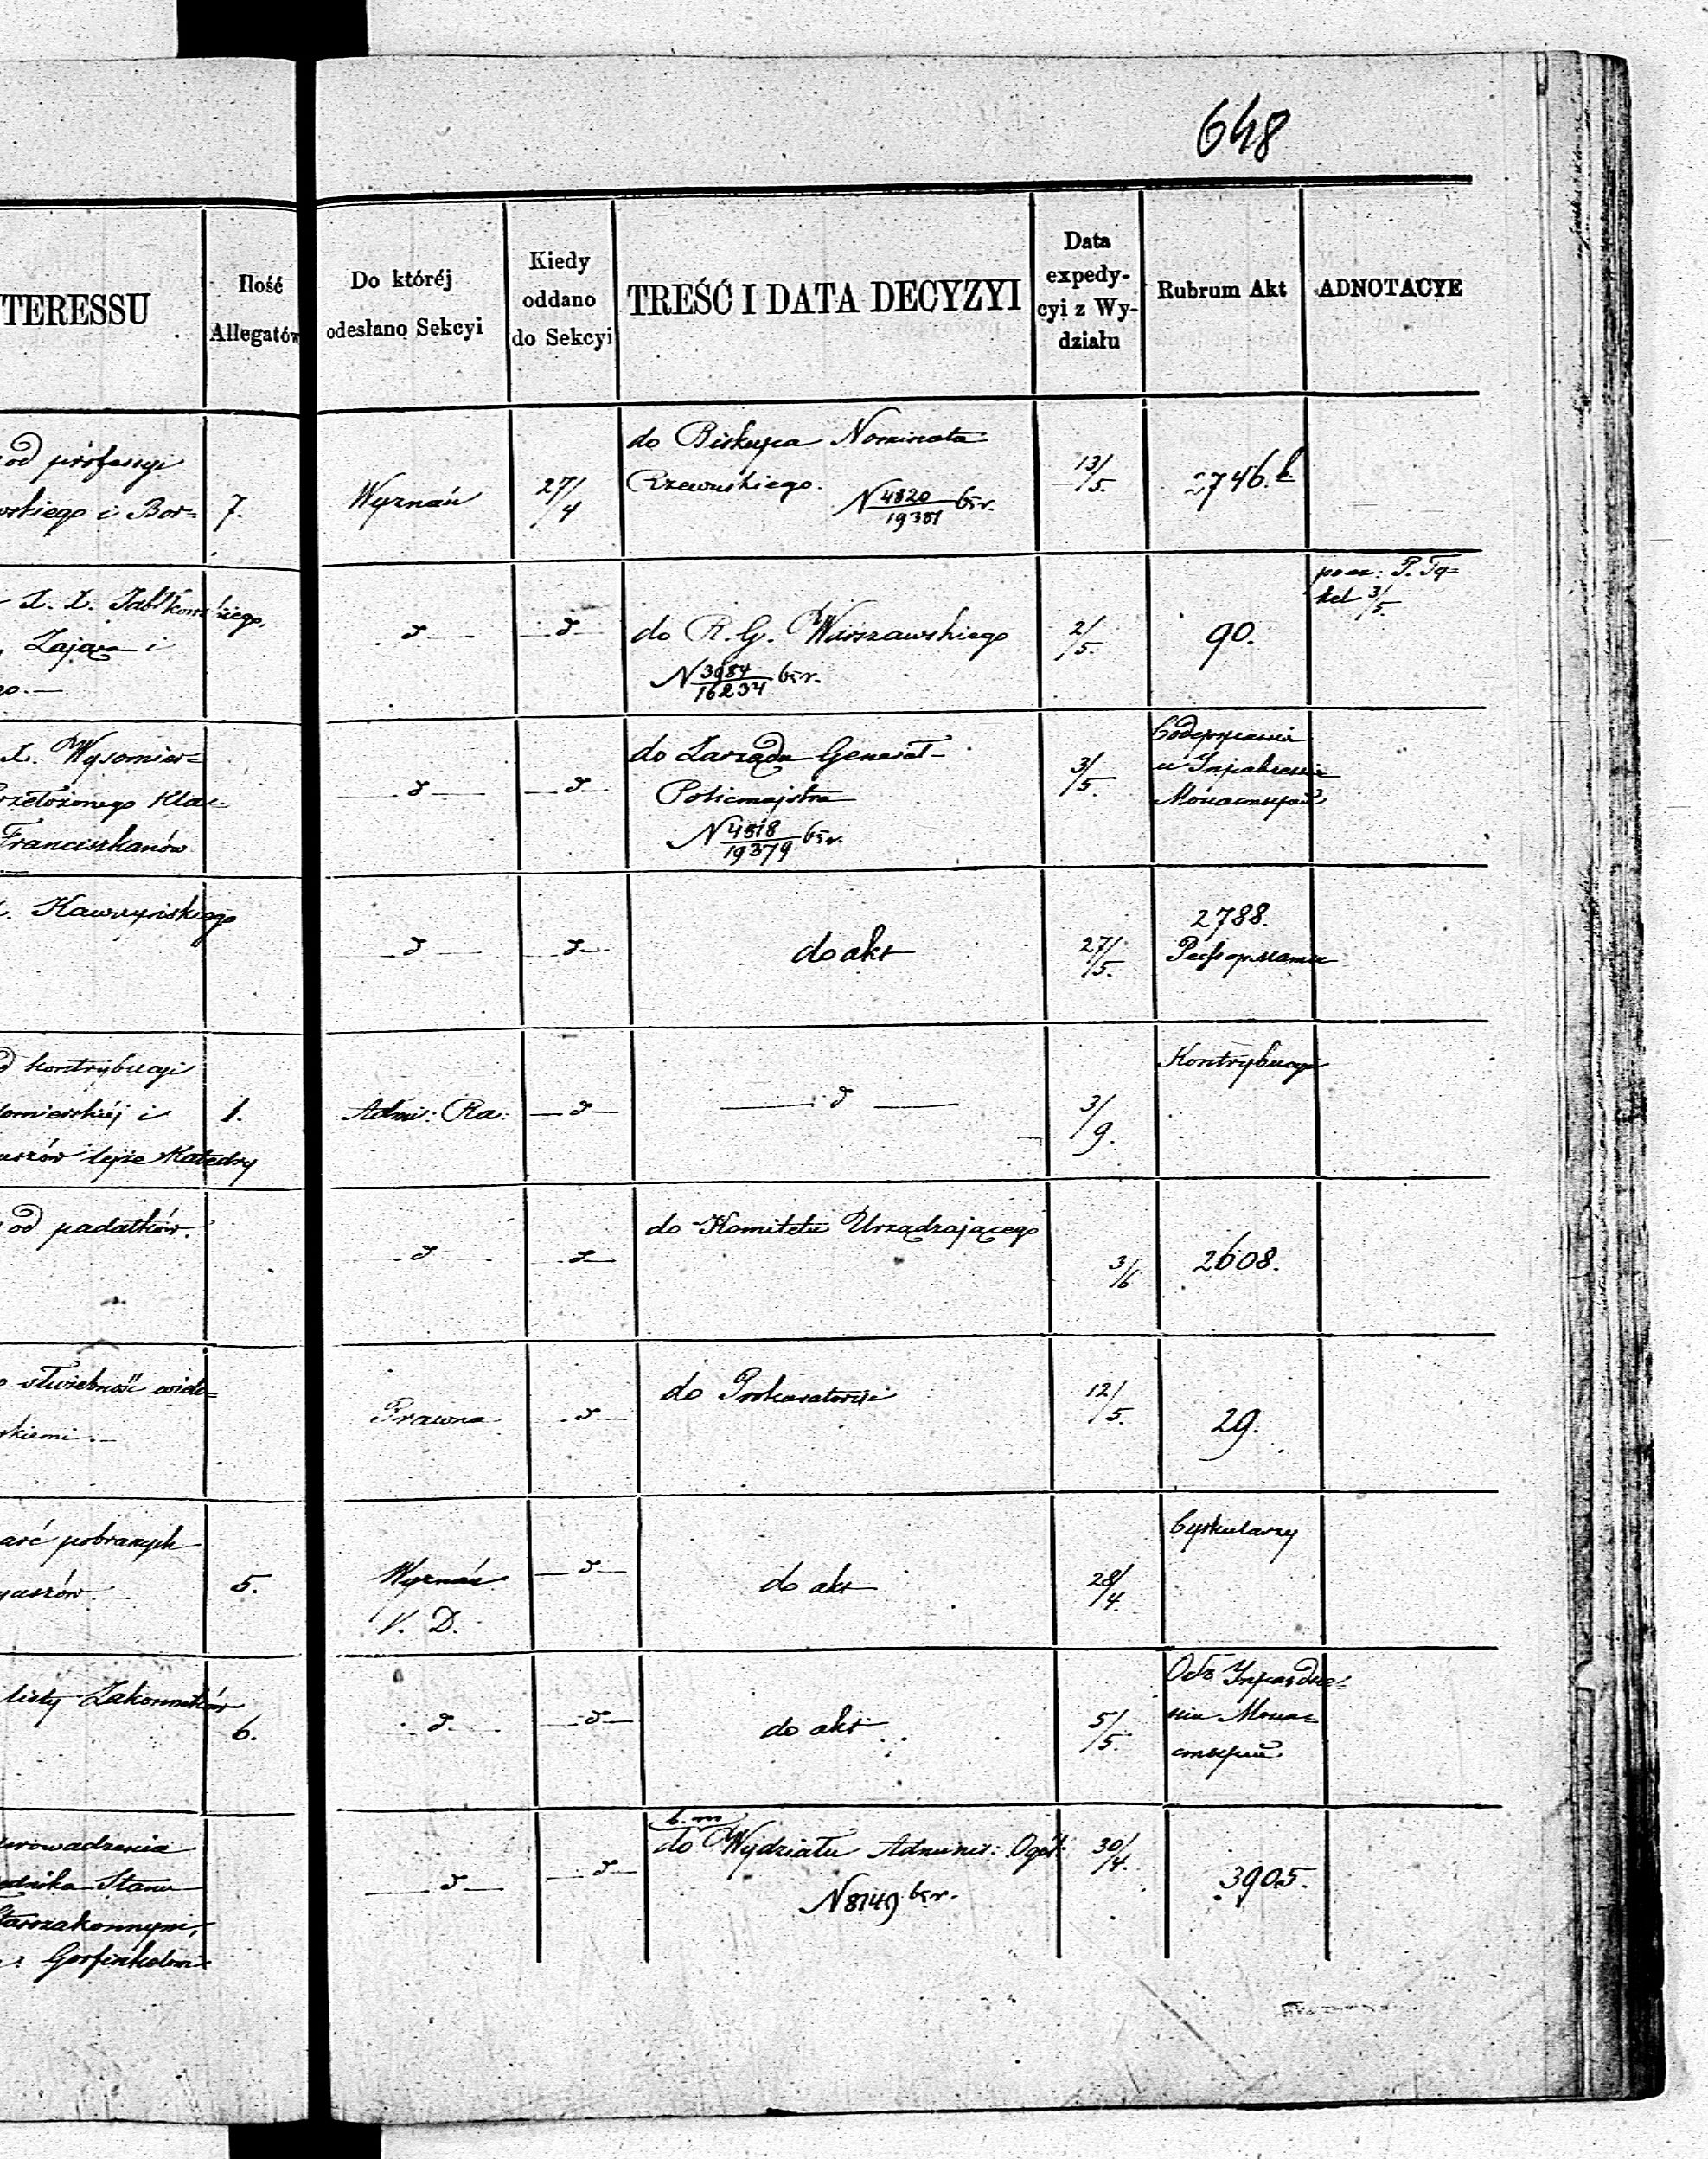 648
TERESSU
Ilość Allegatów
Do któréj odesłano Sekcyi
Kiedy oddano do Sekcyi
TREŚĆ I DATA DECYZYI
Data expedy-cyi z Wy-działu
Rubrum Akt
ADNOTACYE
od professyi
wskiego i Bor=
7.
Wyznań
27/4
do Biskupa Nominata
Rzewuskiego.
N 4820/19381 b.r.
13/5.
2746.b.
X. X. Jabłkowskiego,
Zająca i
go.—
d
d
do R. G. Warszawskiego
N 3984/16234 b.r.
2/5.
90.
3/5.
X. Wysomier=
Przełożonego Kla=
Franciszkanów
d
d
do Zarządu Generał-
Policmajstra
N 4818/19379 b.r.
3/5.
Содержания
и Упразднения
Монастырей
Kawczyńskiego
d
d
do akt
27/5.
2788.
d kontrybucyi
domierskiéj i
uszów tejże Katedry
1.
Adm: Ra:
d
d
3/9.
Kontrybucyi
od podatków.
d
d
do Komitetu Urządzającego
3/6
2608.
o służebność
skiemi.—
Prawna
d
do Prokuratoryi
12/5.
29.
pobranych
yuszów.
5.
Wyznań
V. D.
d
do akt
28/4.
Cyrkularzy
listy Zakonników
6.
d
d
do akt
5/5.
Объ Упраздне=
нiи Мона=
стырей
prowadzenia
Stanu
Starozakonnymi,
Gorfinkelemi
d
d
b. m
do Wydziału Adminis: Ogól:
N 8749 b.r.
30/4.
3905.